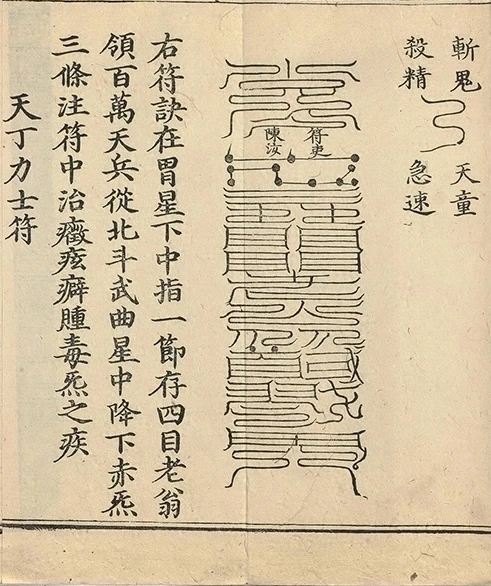 斬鬼　天童
殺精　急速
符吏
陳
右符訣在胃星下中指一節存四目老翁
領百萬天兵從北斗武曲星中降下赤炁
三條注符中治癥痃癖腫毒炁之疾
天丁力士符